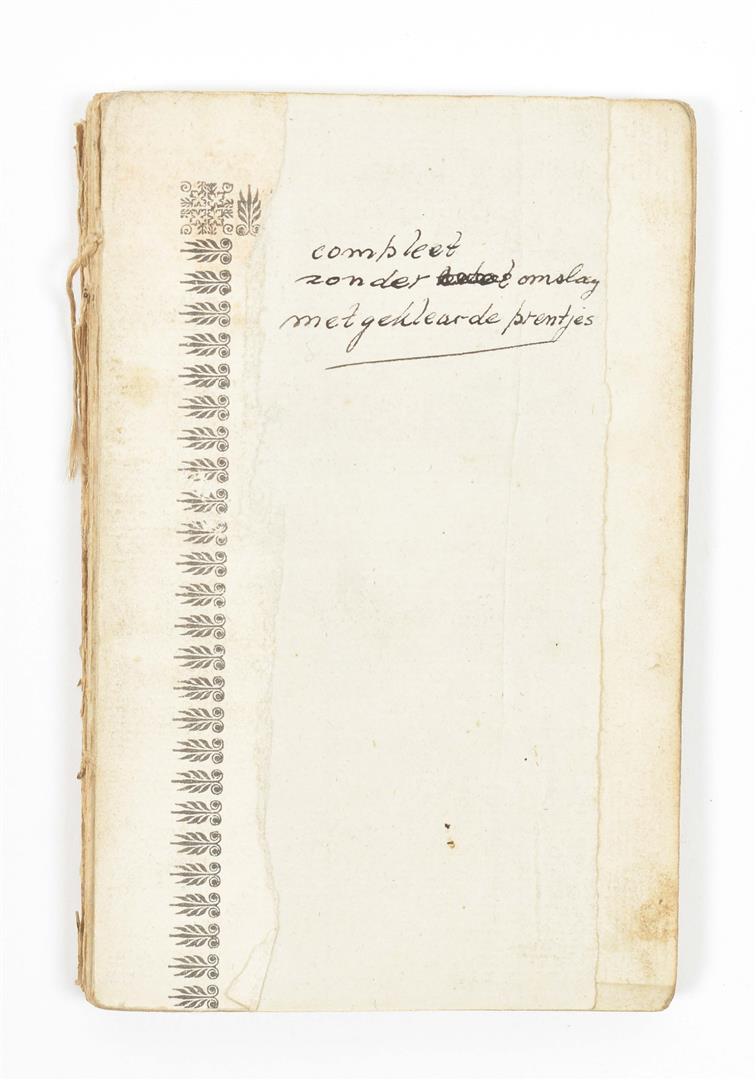 compleet
zonder omslag
met gekleurde prentjes